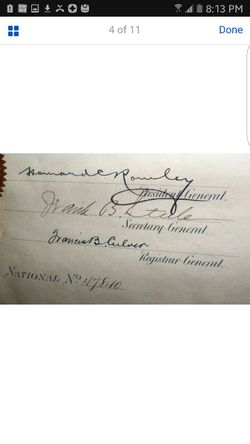 8:13 PM
4 of 11
Done
Howard C Rowley
President General.
Frank B. Steele
Secretary General.
Francis B. Culver
Registrar General.
NATIONAL No 47840